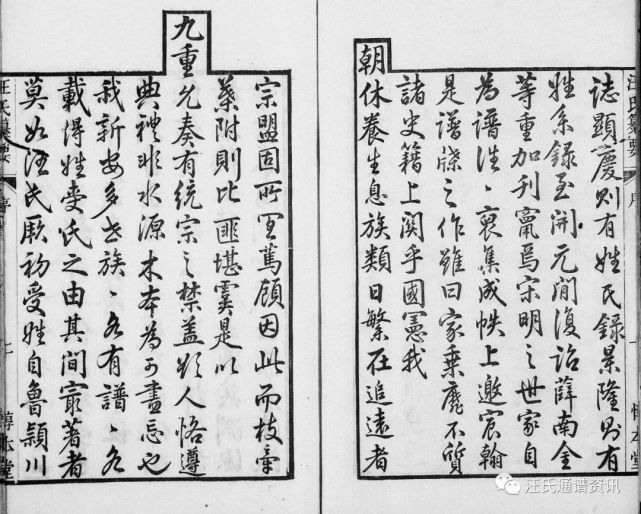 誌顯慶則有姓氏錄景隆則有
姓系錄至開元間復詔薛南金
等重加刊竄焉宋明之世家自
為譜法〻裒集成帙上邀宸翰
是譜牒之作雖曰家乘靡不質
諸史籍上關乎國憲我
朝休養生息族類日繁在追遠者
宗盟固所宜篤顧因此而枝牽
葉附則比匪堪虞是以
九重允奏有統宗之禁蓋欲人恪遵
典禮非水源木本為可盡忘也
我新安多世族〻各有譜〻各
載得姓受氏之由其間最著者
莫如汪氏厥初受姓自魯穎川
汪氏纂要
序
惇本堂
汪氏通谱资讯